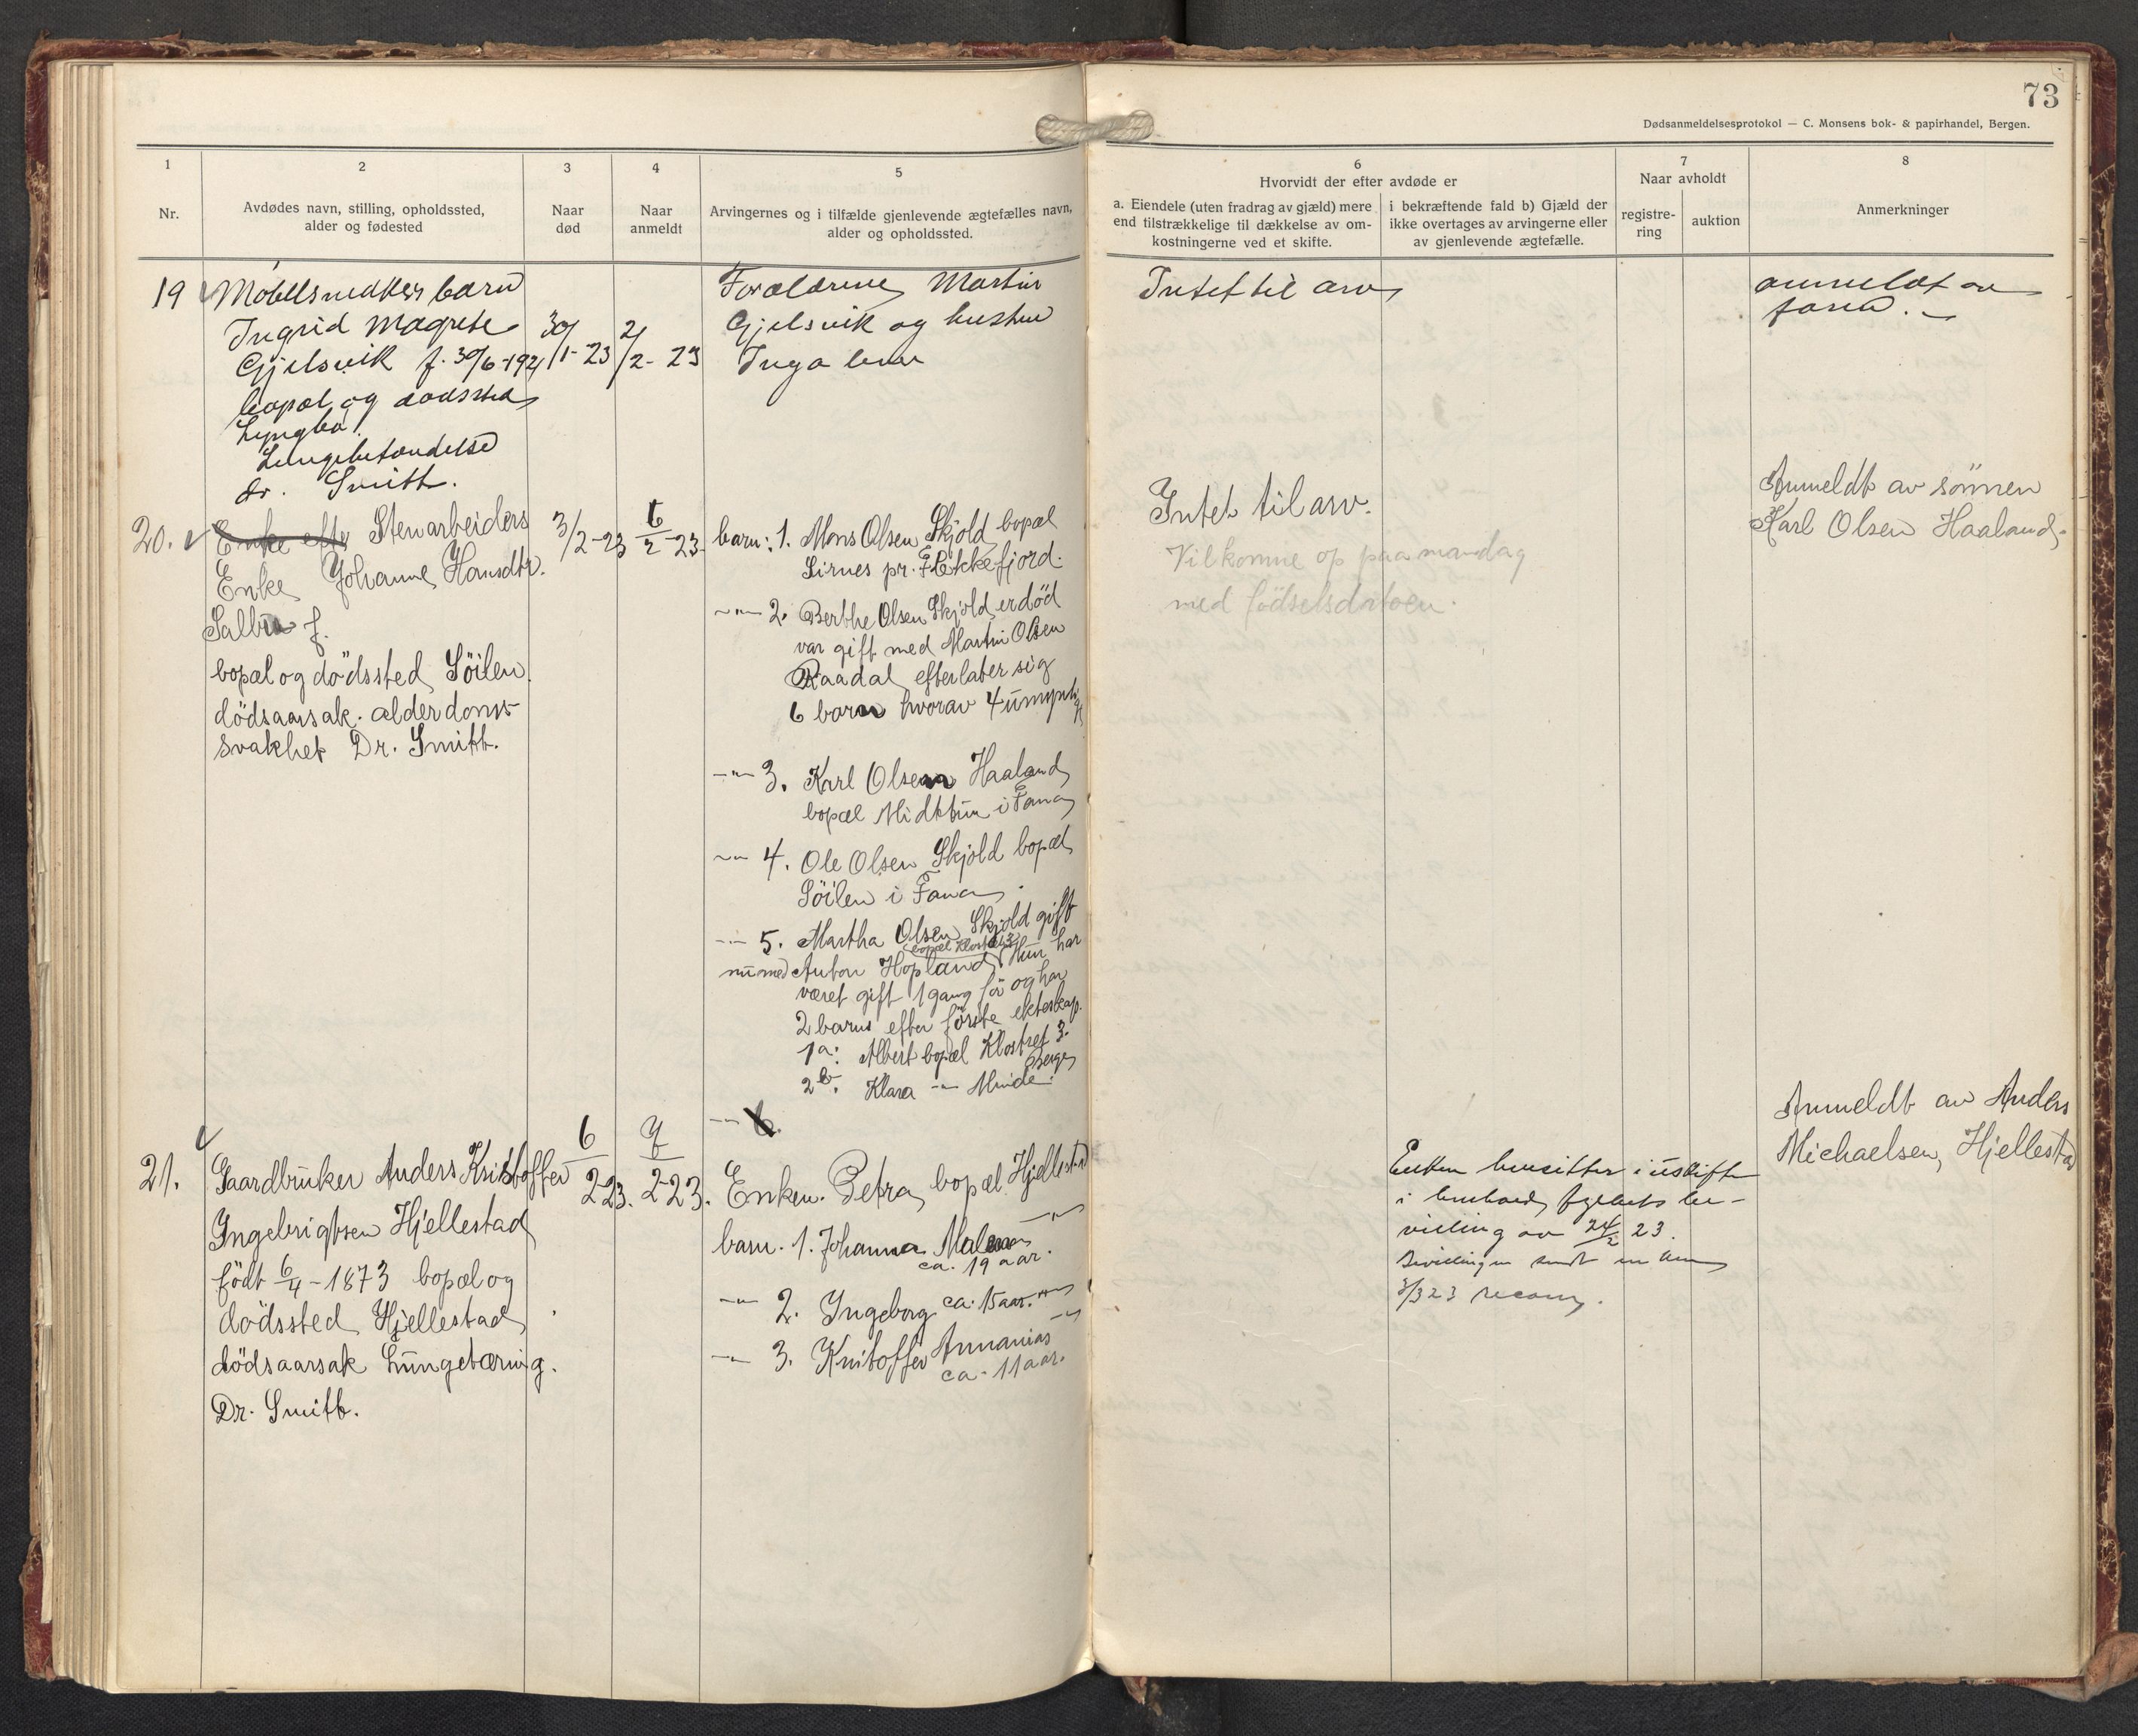 73
Dødsanmeldelsesprotokol — C. Monsens bok- & papirhandel, Bergen.
1
2
3
4
5
Nr.
Avdødes navn, stilling, opholdssted,
alder og fødested
Naar
død
Naar
anmeldt
Arvingernes og i tilfælde gjenlevende ægtefælles navn,
alder og opholdssted.
6
Hvorvidt der efter avdøde er
a. Eiendele (uten fradrag av gjæld) mere
end tilstrækkelige til dækkelse av om-
kostningerne ved et skifte.
i bekræftende fald b) Gjæld der
ikke overtages av arvingerne eller
av gjenlevende ægtefælle.
7
Naar avholdt
registre-
ring
auktion
8
Anmerkninger
19
Møbelsnedker barn
Ingrid Magrete
Gjelsvik f. 30/6-1921
bopæl og dødssted
Lyngbø
Lungebetændelse
dr. Smitt.
30/1-23
2/2-23
Forældrene Martin
Gjelsvik og hustru
Inga lever
Intet til arv
anmeldt av
faren.
20.
Enke efter Stenarbeiders
Enke Johanne Hansdtr.
Salbu f.
bopæl og dödssted Söilen.
dödsaarsak. alderdoms-
svakhet Dr. Smitt.
3/2-23
6/2-23.
barn: 1. Mons Olsen Skjold bopæl
Sirnes pr. Flekkefjord.
2. Berthe Olsen Skjold er död
var gift med Martin Olsen
Raadal efterlater sig
6 barn hvorav 4 umynd
3. Karl Olsen Haaland
bopæl Midttun i Fana
4. Ole Olsen Skjold bopæl
Söilen i Fana
5. Martha Olsen Skjold gift
bopæl Klostret 3
nu med Anton Hopland Hun har
været gift 1 gang för og har
2 barn efter förste ekteskap.
1a: Albert bopæl Klostret 3.
Bergen
2b. Klara -"- Minde.
6.
Intet til arv.
Vil komme op paa mandag
med födselsdatoen.
Anmeldt av sönnen
Karl Olsen Haaland.
21.
Gaardbruker Anders Kristoffer
Ingebrigtsen Hjellestad
födt 6/4-1873 bopæl og
dödssted Hjellestad
dödsaarsak Lungetæring.
Dr. Smitt.
6/2-23.
7/2-23.
Enken. Petra, bopæl Hjellestad
barn. 1. Johanna Malena -"-
ca. 19 aar.
-"- 2. Ingeborg ca. 15 aar. -"-
-"- 3. Kristoffer Annanias -"-
ca. 11 aar.
Enken hensitter i uskifte
i henhold til be-
villing av 24/2 23.
Bevillingen sendt
3/3 23
Anmeldt av Anders
Michaelsen, Hjellestad